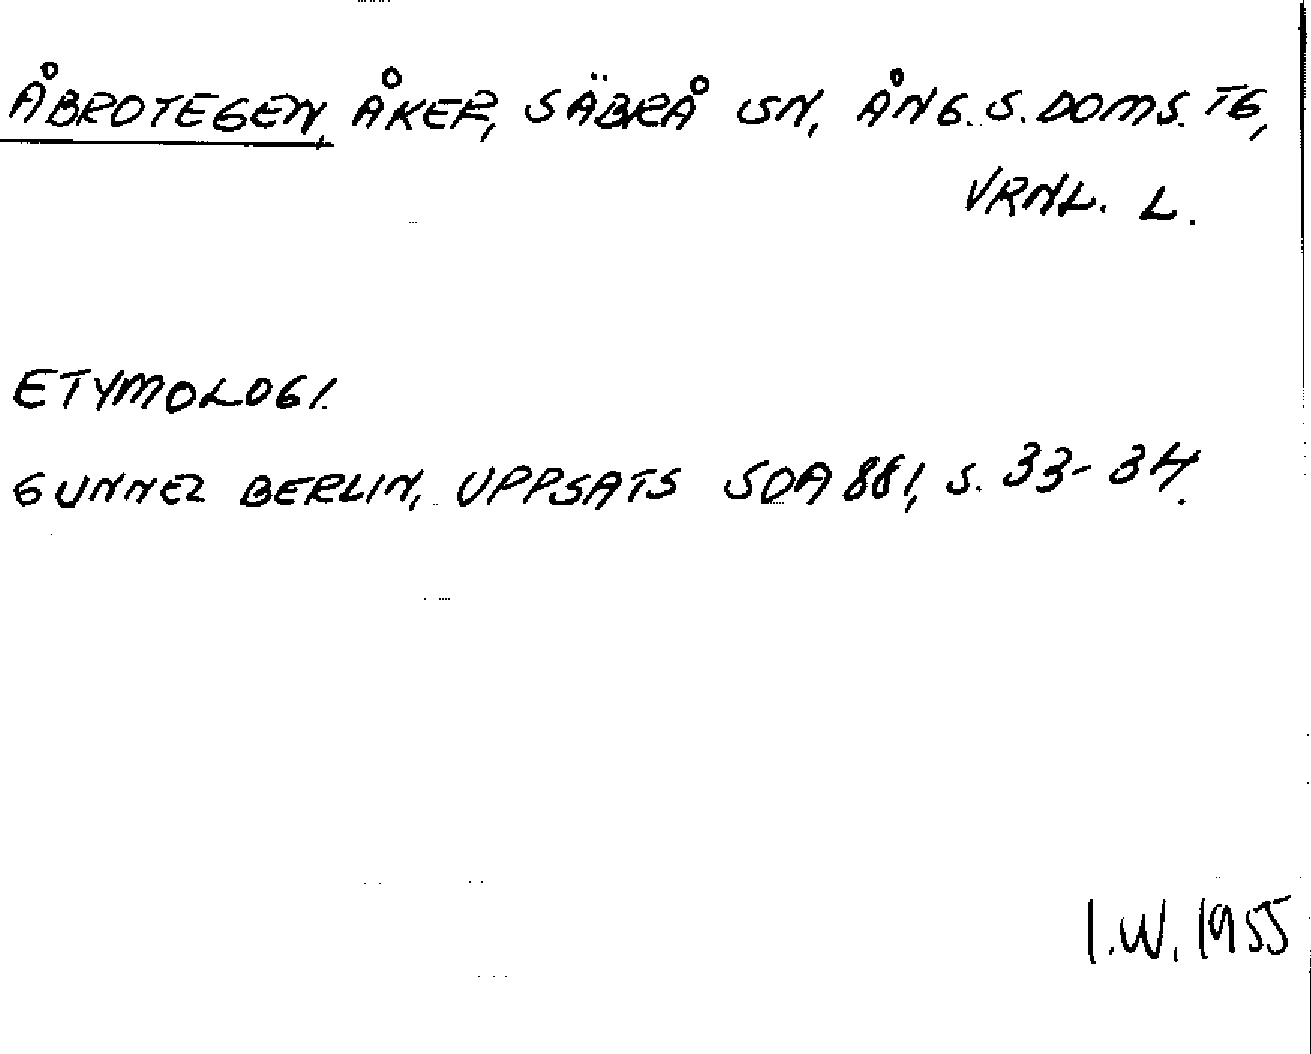 ÅBROTEGEN, ÅKER, SÄBRÅ SN, ÅNG. S. DOMS. TG,
VRNL. L.
ETYMOLOGI.
GUNNEL BERLIN, UPPSATS SOA 881, S. 33-34.
I.W. 1955